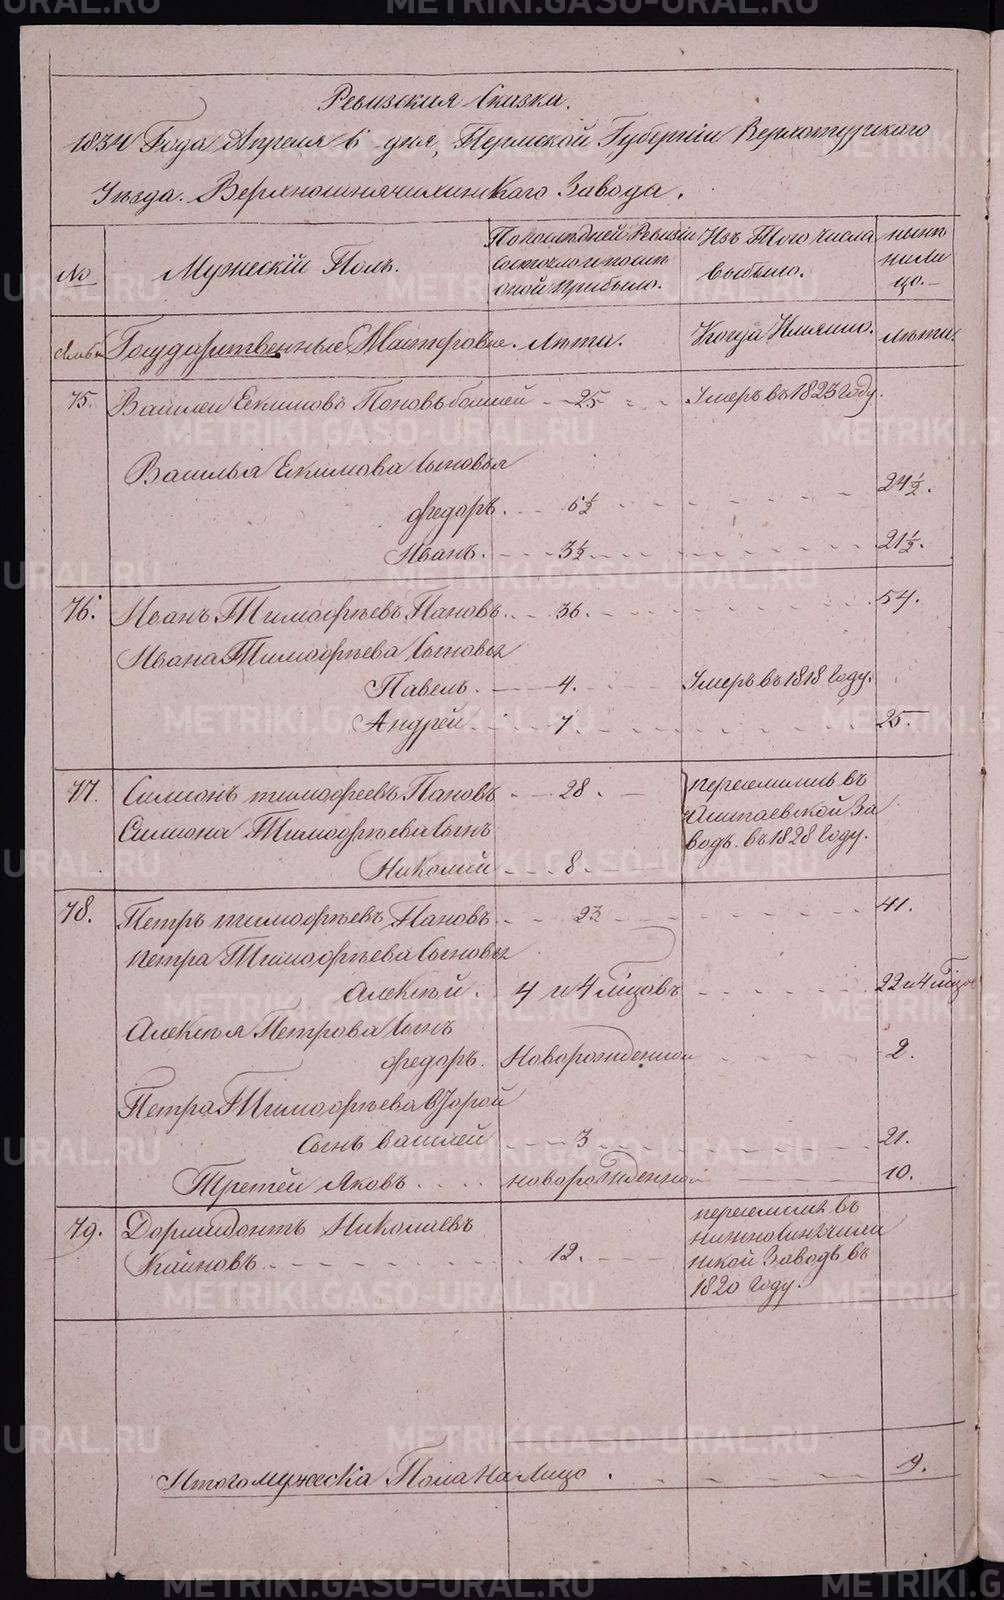 Ревизская Сказка.
1834 Года Апреля 6 дня, Пермской Губернiи Верхотурского
Уезда. Верхнесинячихинского Завода.
№
Мужескiй Полъ.
По последней Ревизiи
состояло и после
оной прибыло.
Изъ Того числа
выбыло.
ныне
на ли
цо.
Семьи
Государственные Мастеровые.
Лета.
Когда Имянно.
лета.
75. Василей Екимовъ Пановъ большей 25 Умеръ въ 1823 году.
Василья Екимова сыновья
Федоръ. 6½ 24½.
Иванъ. 3½ 21½.
76. Иванъ Тимофеевъ Пановъ. 36. 54.
Ивана Тимофеева Сыновья
Павелъ. 4. Умеръ въ 1818 Году.
Андрей 7 25.
77. Симионъ тимофеевъ Пановъ 28. переселились въ
Симиона Тимофеева Сынъ Алапаевской За
водъ. въ 1828 Году.
Николай 8.
78. Петръ тимофеевъ Пановъ 23 41.
петра Тимофеева Сыновья
Алексей. 4 и 4 мѣсяцовъ 22 и 4 мѣсяц
Алексея Петрова Сынъ
Федоръ. Новорожденной 2.
Петра Тимофеева второй
сынъ василей 3 21.
Третей Яковъ новорожденной 10.
79. Дормидонтъ Николаевъ переселился въ
нижносинячихи
Кайновъ 12. нской Заводъ въ
1820 году.
Итого мужеска Пола На Лицо. 9.
METRIKI.GASO-URAL.RU